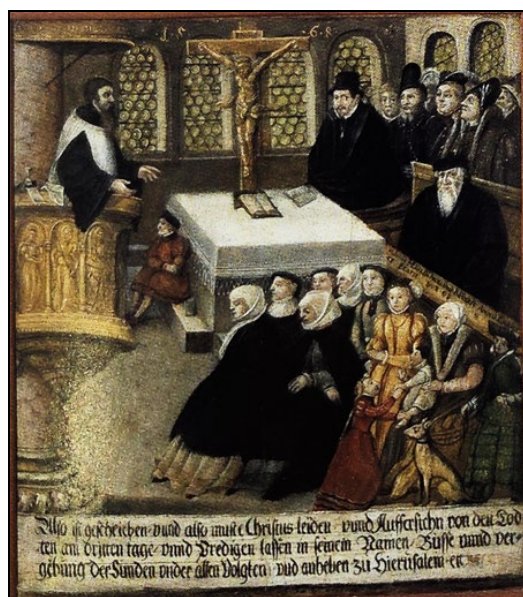 1 5 6 8
Also ist geschrieben vnnd also muste Christus leiden vnnd Aufferstehn von den Tod
ten am dritten tage vnnd Predigen lassen in seinem Namen Busse vnnd ver⸗
gebung der Sunden vnder allen Volgten vnd anheben zu Hierusalem